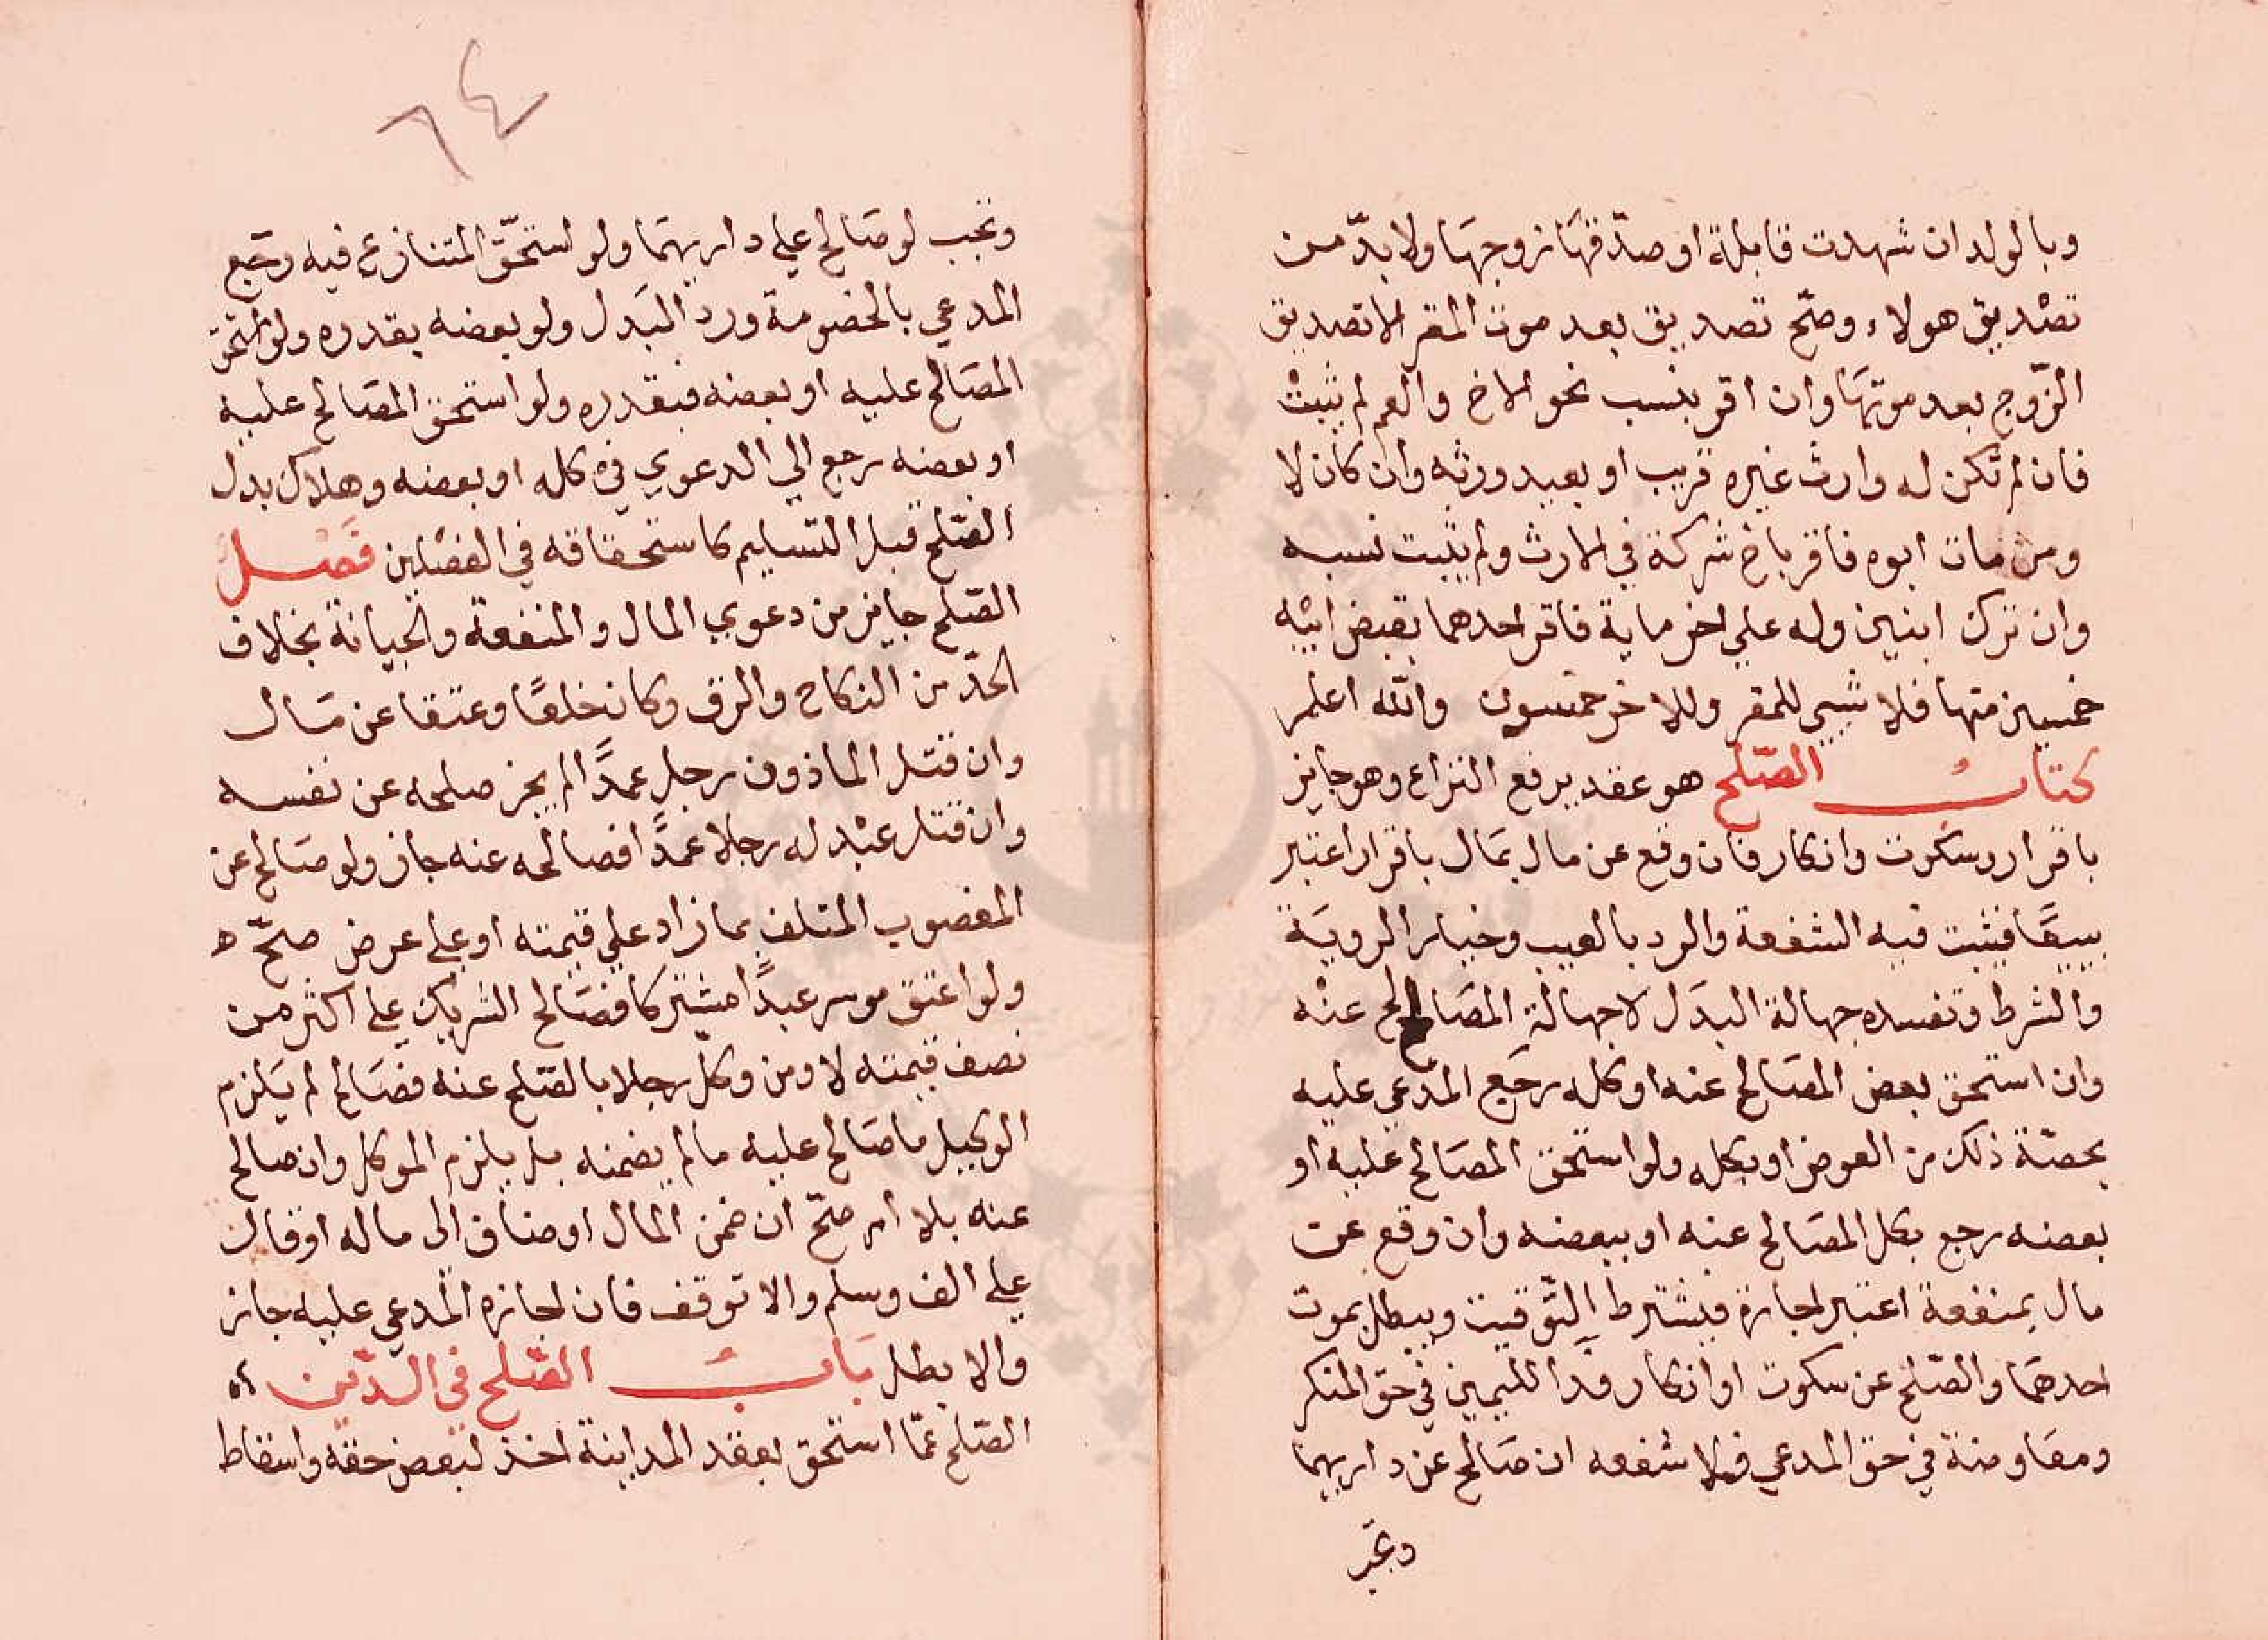 وبالولد ان شهدت قابلة او صدّقها زوجها ولا بدّ من
تصديق هولاء وصحّ تصديق بعد موت المقر الا تصديق
الزّوج بعد موتها وان اقر بنسب نحو الاخ والعم لم يثبت
فان لم تكن له وارث غيره قريب او بعيد ورثه وان كان لا
ومن مات ابوه فاقر باخ شركة في الارث ولم يثبت نسبه
وان ترك ابنين وله علي اخر ماية فاقر احدهما بقبض ابيه
خمسين منها فلا شيي للمقر وللاخر خمسون والله اعلم
كتاب الصّلح هو عقد يرفع النزاع وهو جايز
باقرار وسكوت وانكار فان وقع عن مال بمال باقرار اعتبر
بيعًا فيثبت فيه الشفعة والرد بالعيب وخيار الروية
والشرط وتفسده جهالة البدل لا جهالة المصالح عنه
وان استحق بعض المصالح عنه او كله رجع المدّعي عليه
بحصّة ذلك من العوض او بكله ولو استحق المصالح عليه او
بعضه رجع بكل المصالح عنه او ببعضه وان وقع عن
مال بمنفعة اعتبر اجارة فيشترط التّوقيت ويبطل بموت
احدهما والصّلح عن سكوت او انكار فدا لليمين في حق المنكر
ومعاوضة في حق المدعي فلا شفعه ان صالح عن دار بهما
وتجب
٦٤
وتجب لو صالح علي دار بهما ولو استحقّ المتنازع فيه رجع
المدعي بالخصومة ورد البدل ولو بعضه بقدره ولو استحق
المصالح عليه او بعضه فبقدره ولو استحق المصالح عليه
او بعضه رجع الي الدعوي في كله او بعضه وهلاك بدل
الصّلح قبل التسليم كاستحقاقه في الفصلين فصل
الصّلح جايز من دعوي المال والمنفعة والجيانة بخلاف
الحدّ من النكاح والرق وكان خلعًا وعتقا عن مال
وان قتل الماذون رجل عمدًا لم يجز صلحه عن نفسه
وان قتل عبد له رجلا عمدًا فصالحه عنه جاز ولو صالح عن
المغصوب المتلف بما زاد علي قيمته او علي عرض صحّ ه
ولو اعتق موسر عبدًا مشتركا فصالح الشريك علي اكثر من
نصف قيمته لا ومن وكل رجلا بالصّلح عنه فصالح لم يلزم
الوكيل ما صالح عليه ما لم يضمنه بل يلزم الموكل وان صالح
عنه بلا امر صحّ ان ضمن المال او ضاف الى ماله او قال
علي الف وسلم والا توقف فان اجازه المدعي عليه جاز
والا بطل باب الصّلح في الدّين
الصّلح عمّا استحق بعقد المداينة اخذ لبعض حقه واسقاط